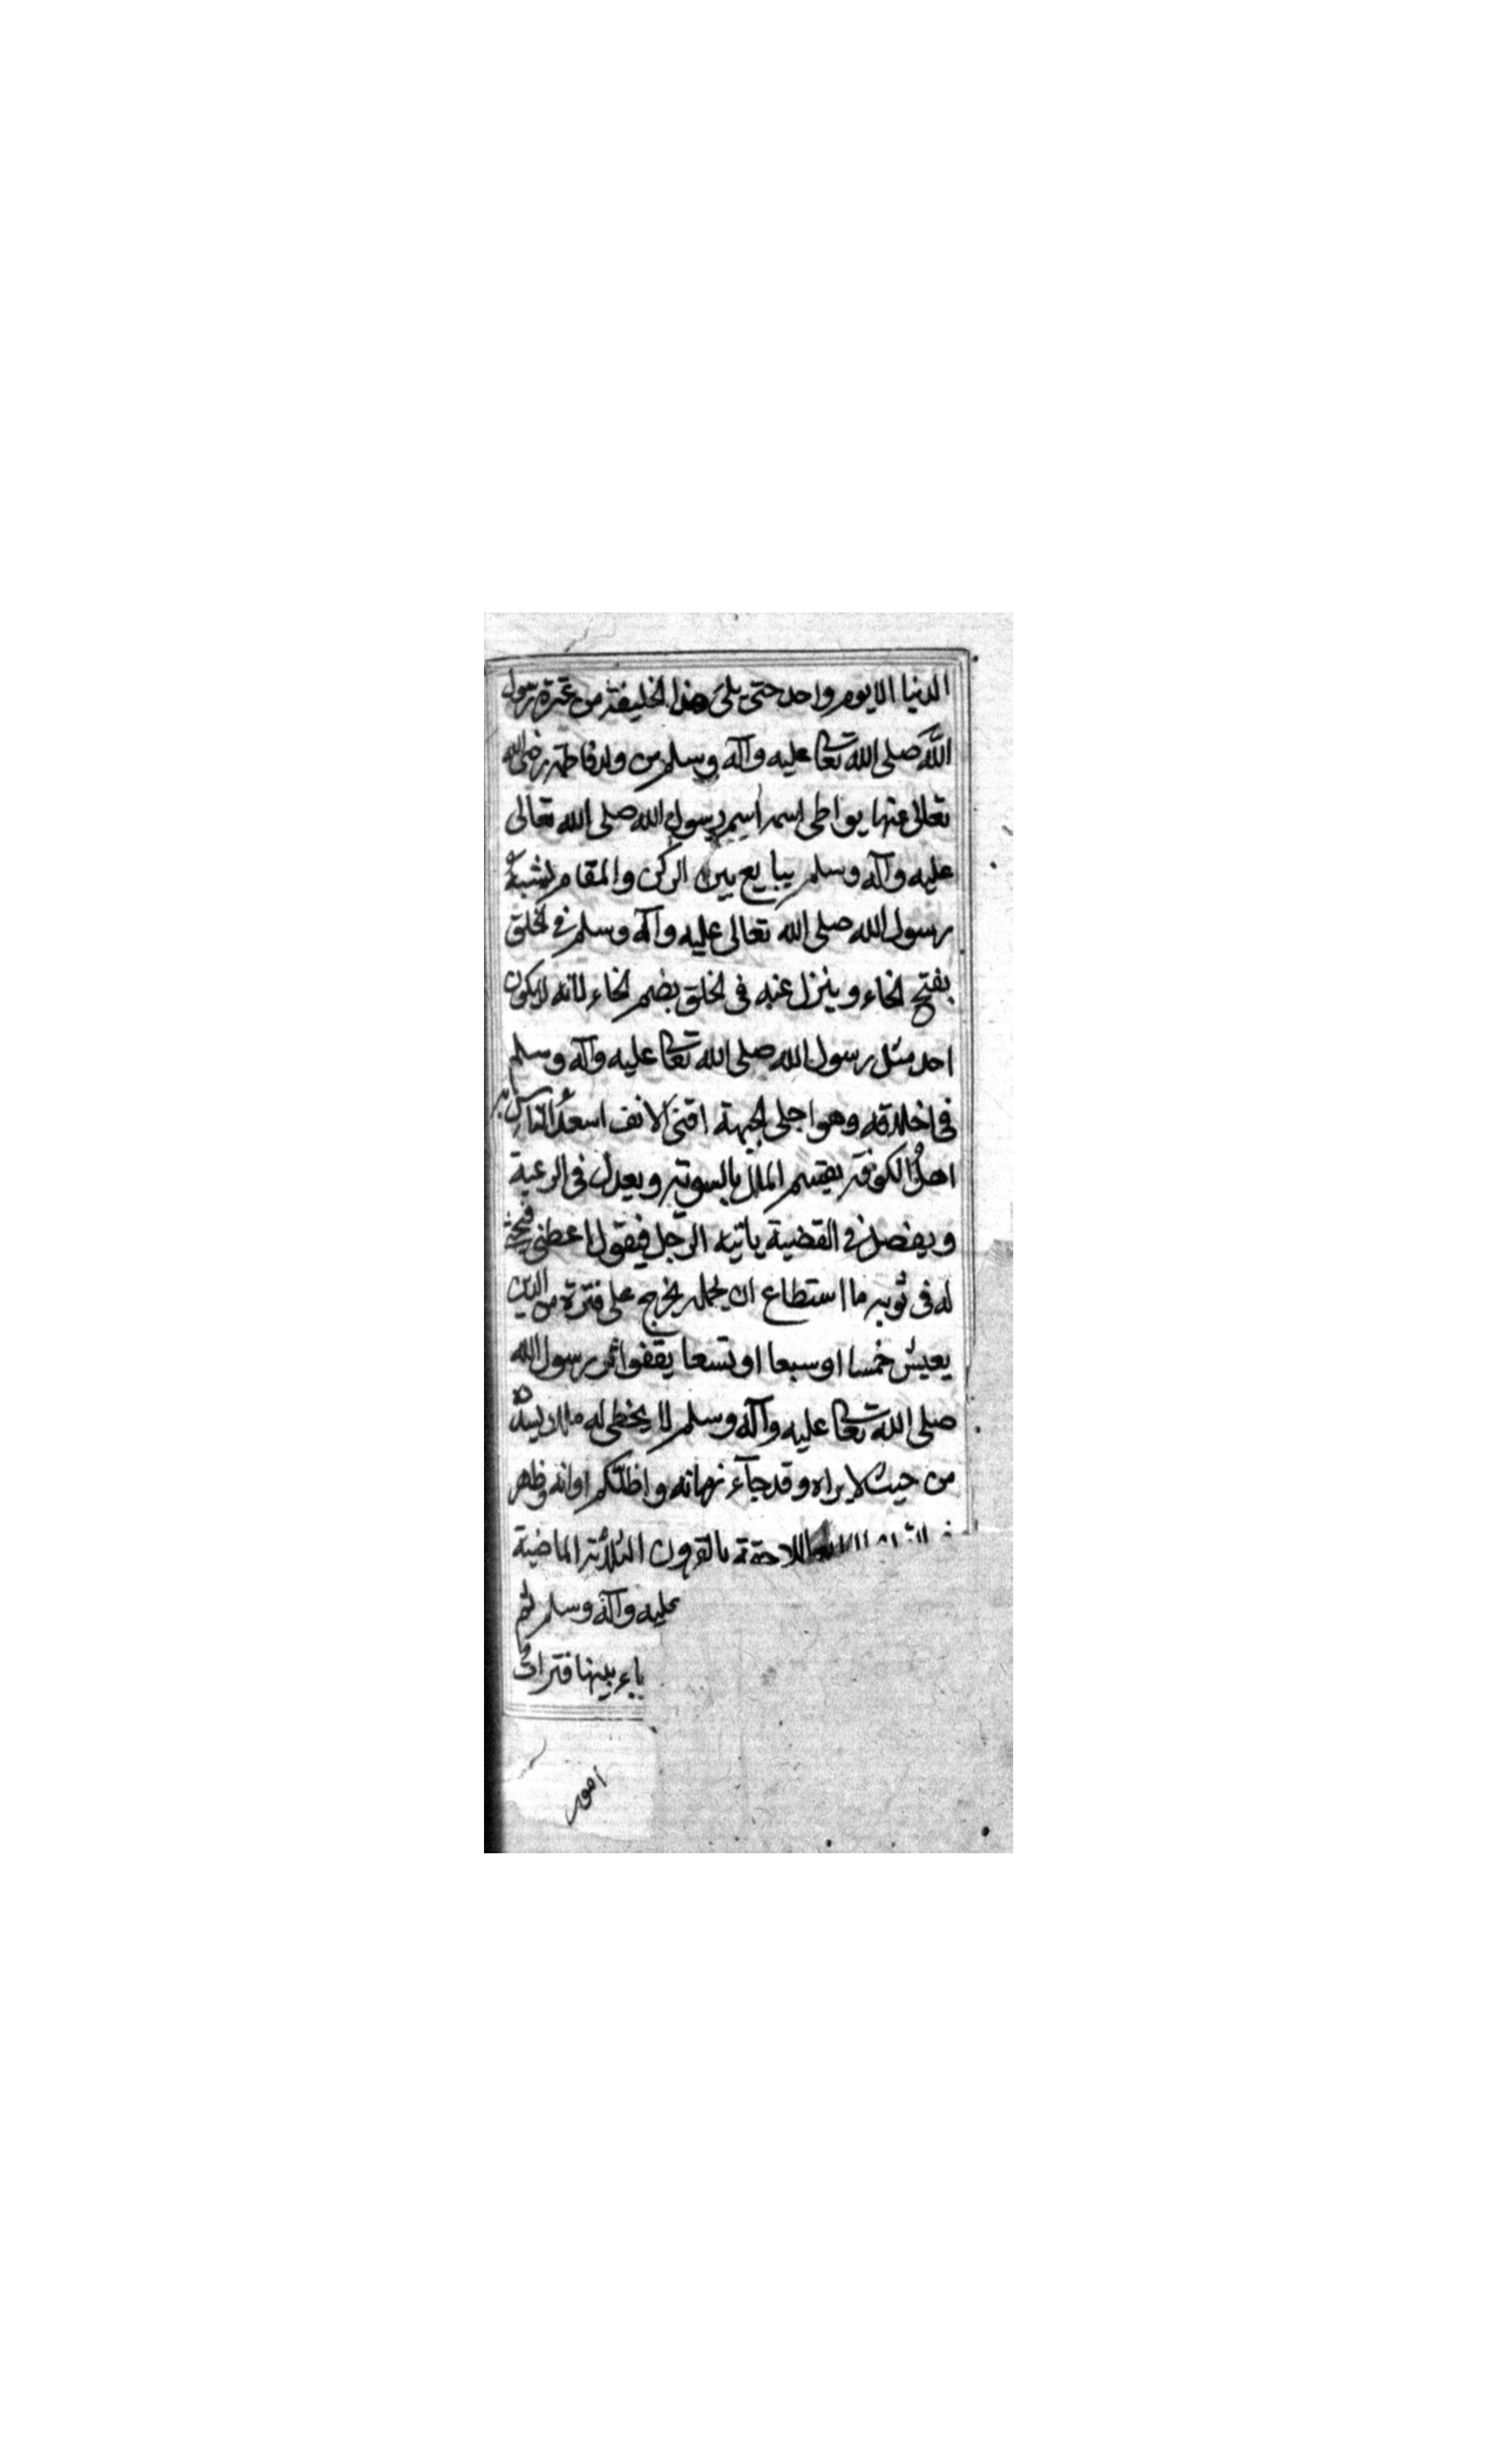 الدنيا الا يوم واحد حتى يلى هذا الخليفة من عترة رسول
الله صلى الله تعالى عليه وآله وسلم من ولد فاطمة رضى الله
تعالى عنها يواطى اسمه اسم رسول الله صلى الله تعالى
عليه وآله وسلم يبايع بين الركن والمقام يشبه
رسول الله صلى الله تعالى عليه وآله وسلم فى الخلق
بفتح الخاء وينزل عنه فى الخلق بضم الخاء لانه لا يكون
احد مثل رسول الله صلى الله تعالى عليه وآله وسلم
فى اخلاقه وهو اجلى الجبهة اقنى الانف اسعد الناس به
اهل الكوفة يقسم المال بالسوية ويعدل فى الرعية
ويفصل فى القضية ياتيه الرجل فيقول اعطنى فيحثى
له فى ثوبه ما استطاع ان يحمله يخرج على فترة من الدين
يعيش خمسا او سبعا او تسعا يقفو اثر رسول الله
صلى الله تعالى عليه وآله وسلم لا يخطى له ملك يسدده
من حيث لا يراه وقد جآء زمانه واظلكم اوانه وظهر
اللاحقة بالقرون الثلاثة الماضية
عليه وآله وسلم ثم
بينها فترات
امور